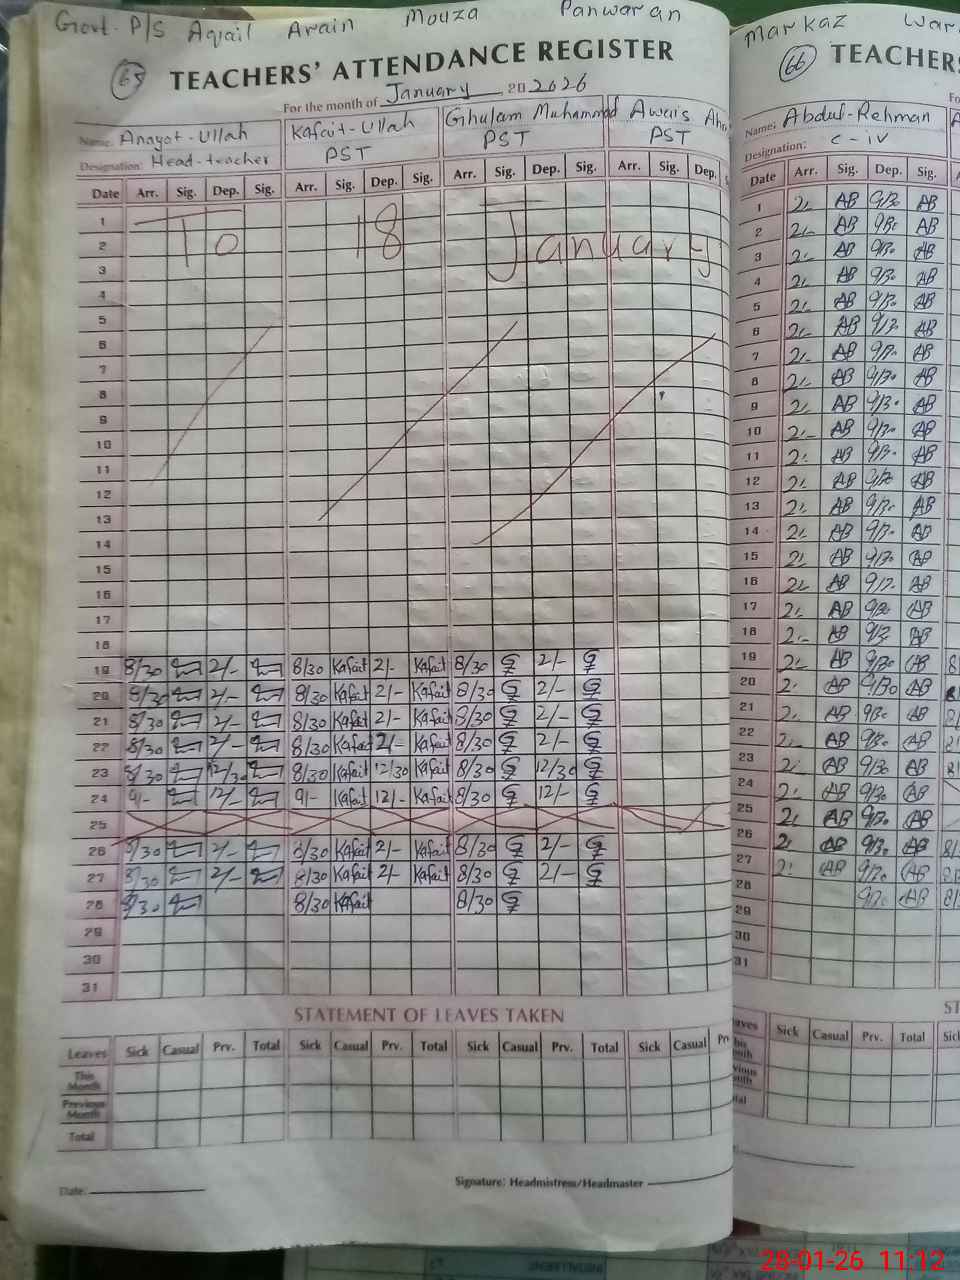 Govt. P/S Aqail Arain Mouza Panwaran
65 TEACHERS' ATTENDANCE REGISTER
For the month of January 20 2026
Name: Anayat-Ullah Kafait-Ullah Ghulam Muhammad Awais
Designation: Head-teacher PST PST PST
Date Arr. Sig. Dep. Sig. Arr. Sig. Dep. Sig. Arr. Sig. Dep. Sig. Arr. Sig. Dep.
1
2 To 18 January
3
4
5
6
7
8
9
10
11
12
13
14
15
16
17
18
19 8/30 2/- 8/30 Kafait 2/- Kafait 8/30 2/-
20 8/30 2/- 8/30 Kafait 2/- Kafait 8/30 2/-
21 8/30 2/- 8/30 Kafait 2/- Kafait 8/30 2/-
22 8/30 2/- 8/30 Kafait 2/- Kafait 8/30 2/-
23 8/30 12/30 8/30 Kafait 12/30 Kafait 8/30 12/30
24 9/- 12/- 9/- Kafait 12/- Kafait 8/30 12/-
25
26 8/30 2/- 8/30 Kafait 2/- Kafait 8/30 2/-
27 8/30 2/- 8/30 Kafait 2/- Kafait 8/30 2/-
28 8/30 8/30 Kafait 8/30
29
30
31
STATEMENT OF LEAVES TAKEN
Leaves Sick Casual Prv. Total Sick Casual Prv. Total Sick Casual Prv. Total Sick Casual
This Month
Previous Month
Total
Date:
Signature: Headmistress/Headmaster
Markaz
66 TEACHERS
Name: Abdul-Rehman
Designation: C-iv
Date Arr. Sig. Dep. Sig.
1 AB 9/30 AB
2 AB 9/30 AB
3 AB 9/30 AB
4 AB 9/30 AB
5 AB 9/30 AB
6 AB 9/30 AB
7 AB 9/30 AB
8 AB 9/30 AB
9 AB 9/30 AB
10 AB 9/30 AB
11 AB 9/30 AB
12 AB 9/30 AB
13 AB 9/30 AB
14 AB 9/30 AB
15 AB 9/30 AB
16 AB 9/30 AB
17 AB 9/30 AB
18 AB 9/30 AB
19 AB 9/30 AB
20 AB 9/30 AB
21 AB 9/30 AB
22 AB 9/30 AB
23 AB 9/30 AB
24 AB 9/30 AB
25 AB 9/30 AB
26 AB 9/30 AB
27 AB 9/30 AB
28 9/30 AB
29
30
31
Sick Casual Prv. Total
28-01-26 11:12